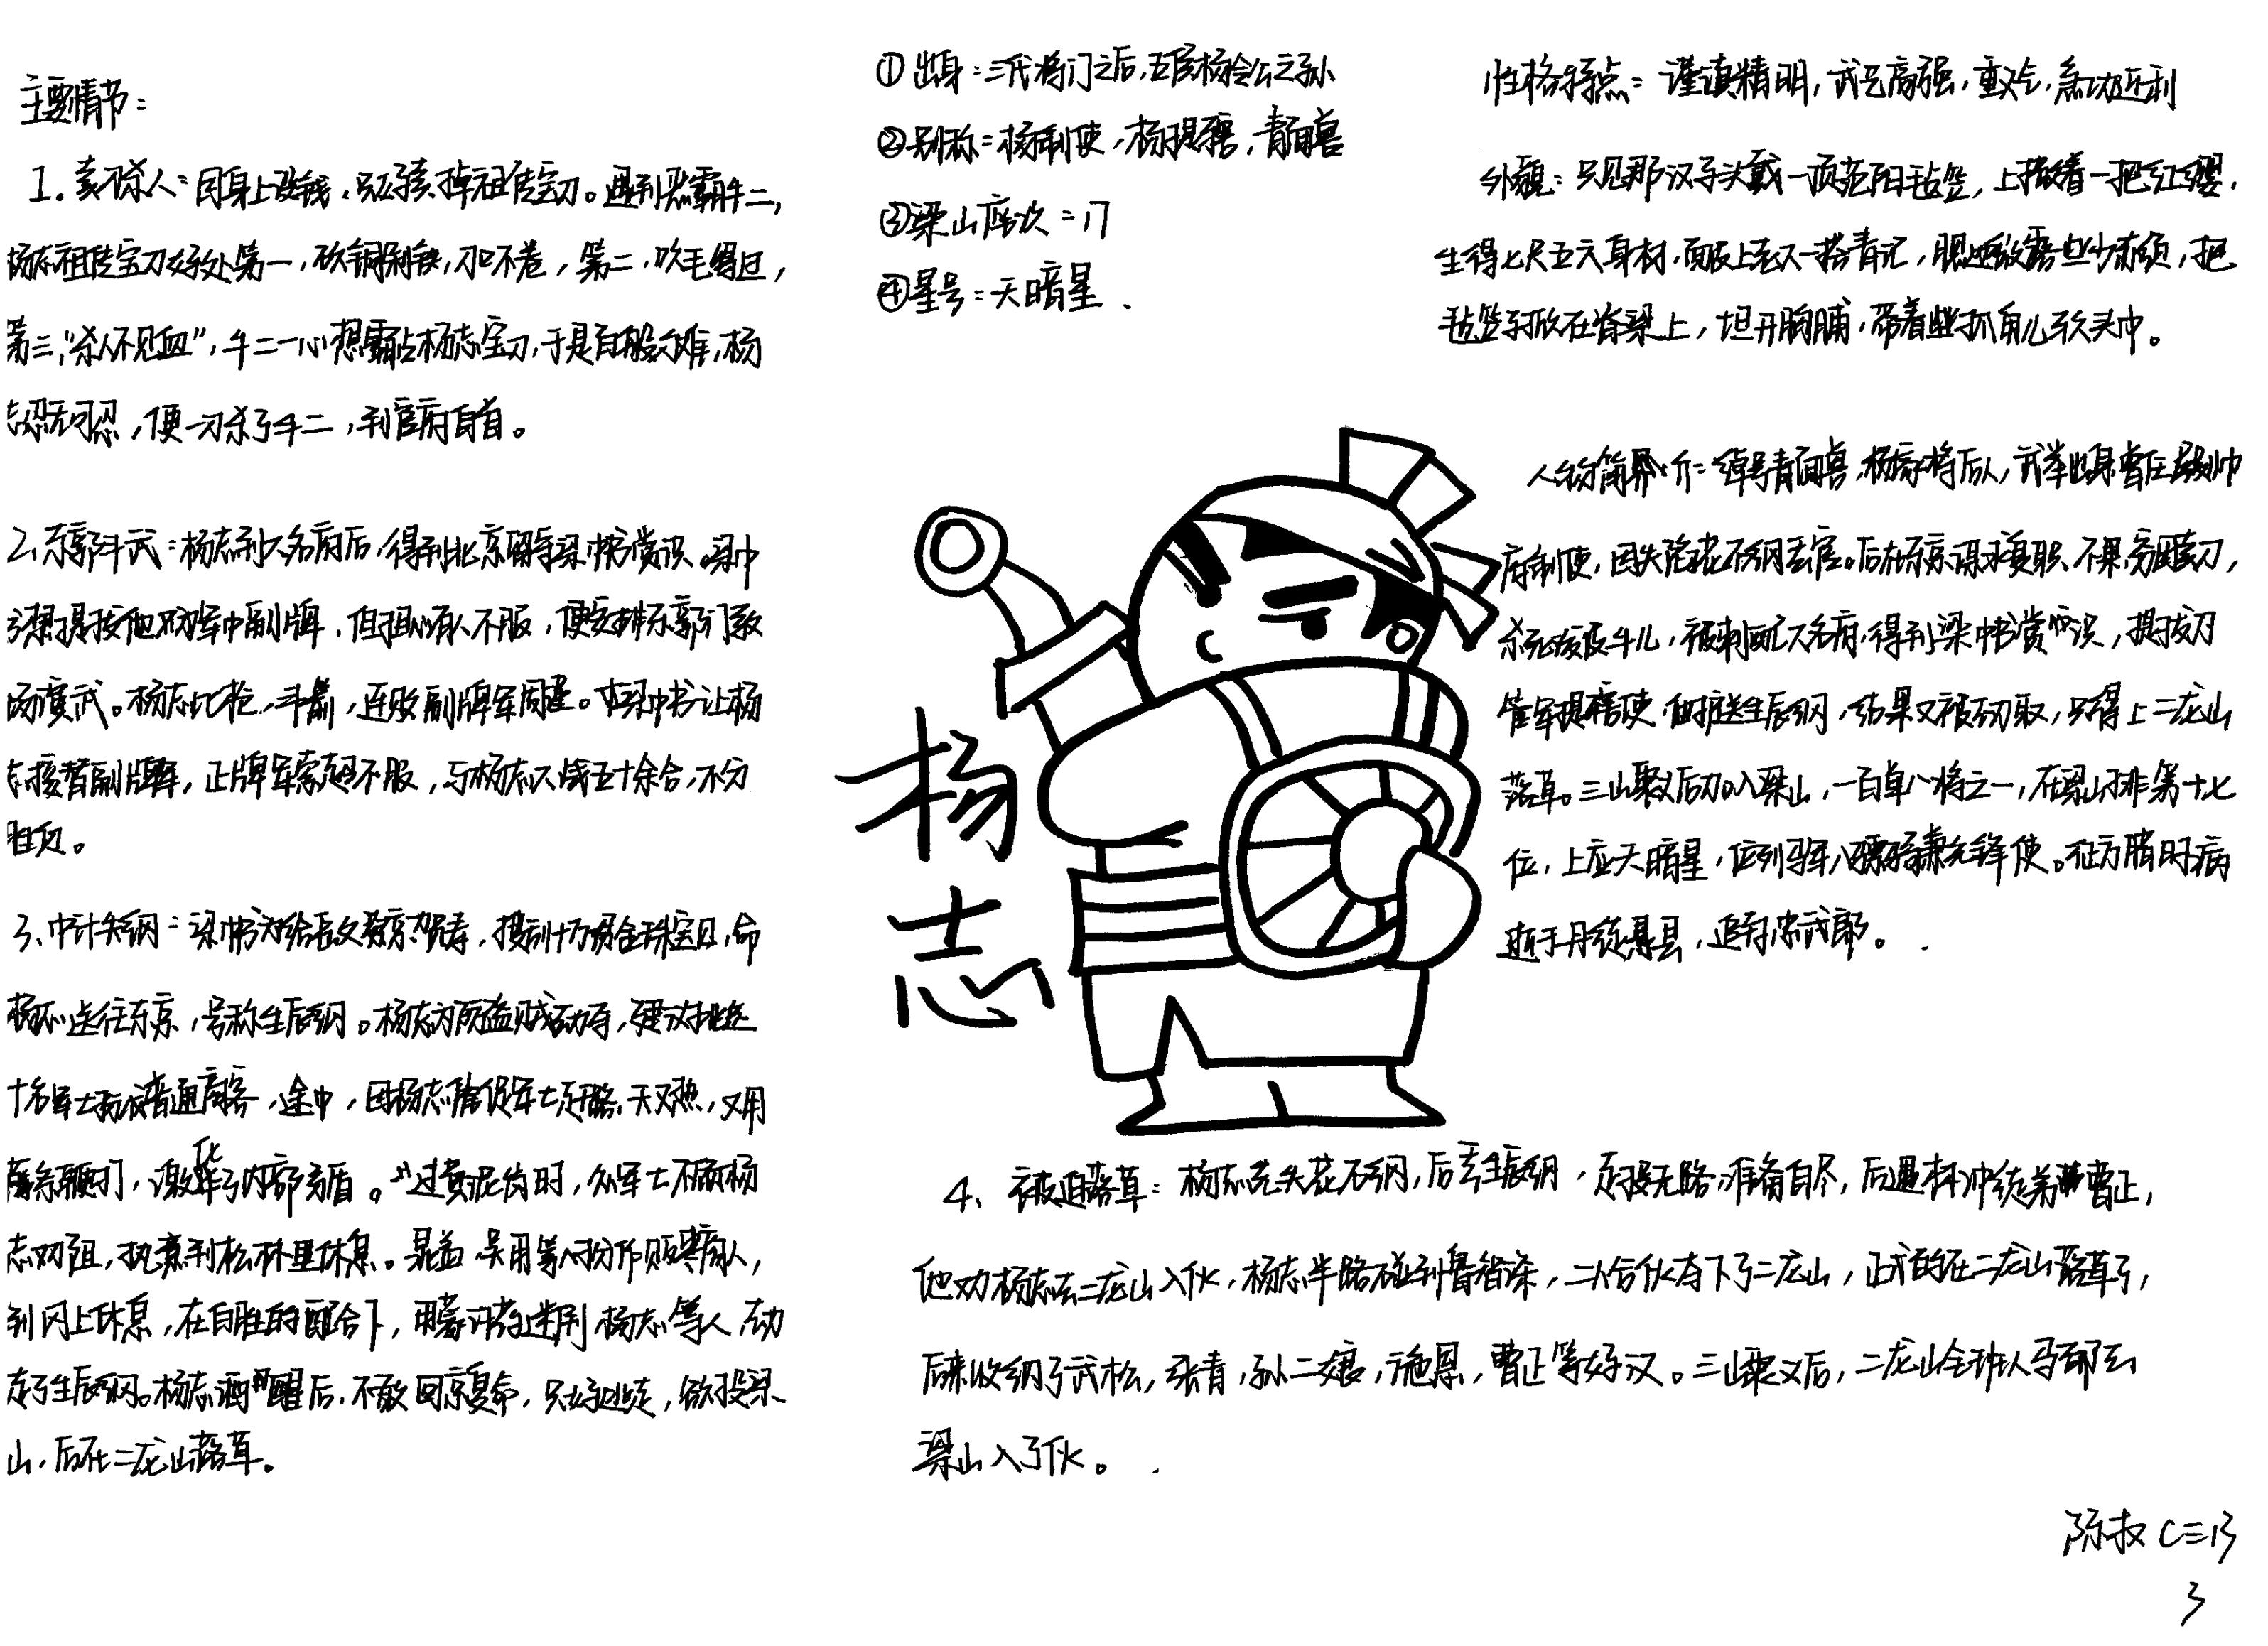 主要情节：
1. 卖刀杀人：因身上没钱，只好卖掉祖传宝刀。遇到恶霸牛二，
杨志祖传宝刀好处第一，砍铜剁铁，刀口不卷，第二，吹毛得过，
第三，“杀人不见血”，牛二一心想霸占杨志宝刀，于是百般刁难，杨
志忍无可忍，便一刀杀了牛二，到官府自首。
2、东郭斗武：杨志到大名府后，得到北京留守梁中书赏识。梁中
书想提拔他为军中副牌，但担心有人不服，便安排东郭门教
场演武。杨志比枪，斗箭，连败副牌军周谨。梁中书让杨
志接替副牌军，正牌军索超不服，与杨志大战五十余合，不分
胜负。
3、中计失纲：梁中书为给岳父蔡京贺寿，搜刮十万贯金珠宝贝，命
杨志送往东京，号称生辰纲。杨志为防盗贼动手，建议挑选
十名军士扮成普通商客，途中，因杨志催促军士赶路，天又热，又用
藤条鞭打，激化了内部矛盾。过黄泥岗时，众军士不顾杨
志劝阻，执意到松林里休息。晁盖 吴用等人扮作贩枣商人，
到冈上休息，在白胜的配合下，用蒙汗药迷倒杨志等人，劫
走了生辰纲。杨志酒醒后，不敢回京复命，只好逃走，欲投梁
山，后在二龙山落草。
① 出身：三代将门之后，五侯杨令公之孙
②别称：杨制使，杨提辖，青面兽
③梁山座次：17
④星号：天暗星．
性格特点：谨慎精明，武艺高强，重义气，急功近利
外貌：只见那汉子头戴一顶范阳毡笠，上撒着一把红缨，
生得七尺五六身材，面皮上老大一搭青记，腮边微露些少赤须，把
毡笠子掀在脊梁上，坦开胸脯，带着些抓角儿软头巾。
人物简介：绰号青面兽，杨家将后人，武举出身曾任殿帅
府制使，因失陷花石纲丢官。后在东京谋求复职不果，穷困卖刀，
杀死泼皮牛儿，被刺配大名府，得到梁中书赏识，提拔为
管军提辖使，他护送生辰纲，结果又被劫取，只得上二龙山
落草。三山聚义后加入梁山，一百单八将之一，在梁山排第十七
位，上应天暗星，位列马军八骠骑兼先锋使。征方腊时病
逝于丹徒县，追封忠武郎。
杨
志
4、被迫落草：杨志先失花石纲，后丢生辰纲，走投无路，准备自尽，后遇林冲徒弟曹正，
他劝杨志去二龙山入伙，杨志半路碰到鲁智深，二人合伙夺下了二龙山，正式的在二龙山落草了，
后来收纳了武松，张青，孙二娘，施恩，曹正等好汉。三山聚义后，二龙山全班人马都去
梁山入了伙。